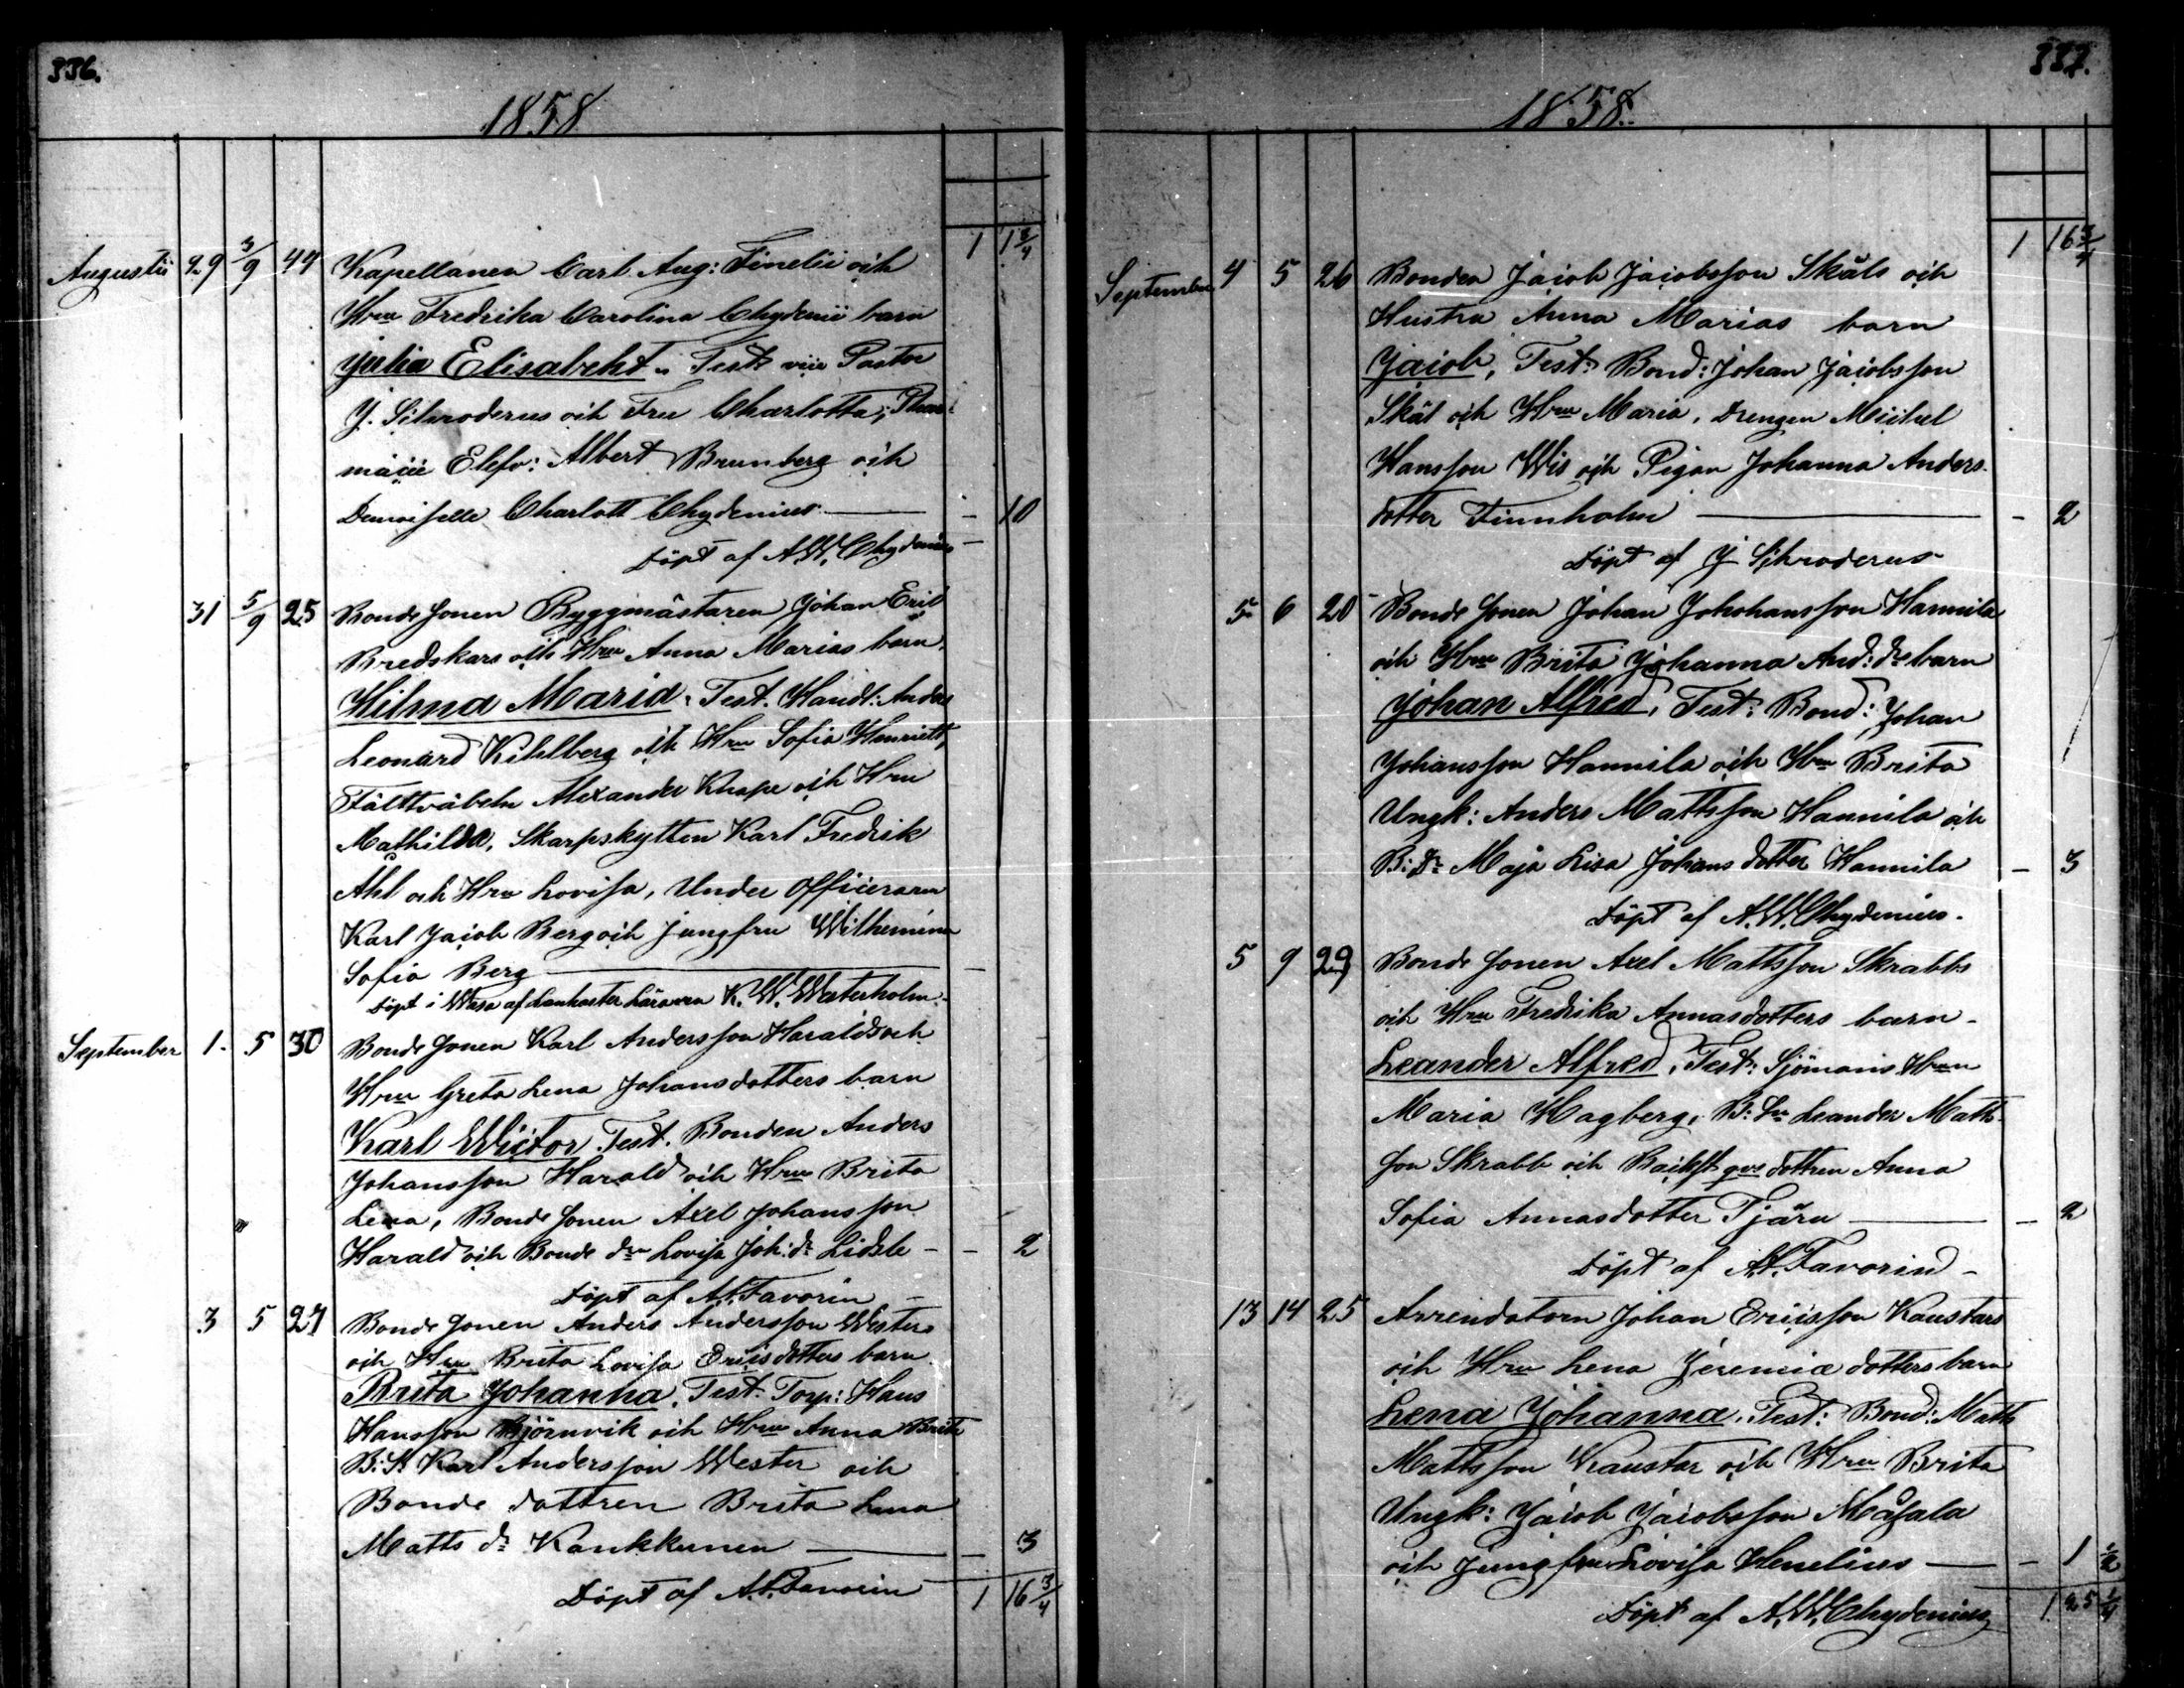 336.
1858
1 1 3/4
Augusti 29 3/9 44 Kapellanen Carl Aug: Finelii och
Hrus Fredrika Carolina Chydenii barn
Julia Elisabeht. Test vice Pastor
J. Schroderus och Fru Charlotta, Phar-
macie Elefv: Albert Brunberg och
Demoiselle Charlott Chydenius — 10
Döpt af A.W. Chydenius
31 5/9 25 Bonde sonen Byggmästaren Johan Eric
Bredskars och Hrus Anna Marias barn
Hilma Maria. Test. Handl: Anders
Leonard Kihlberg och Hru Sofia Henriett,
Fältväbeln Alexander Knape och Hru
Mathilda, Skarpskytten Karl Fredrik
Åhl och Hru Lovisa, Under Officeraren
Karl Jacob Berg och Jungfru Wilhemina
Sofia Berg —
Döpt i Wasa af Lankaster Läraren K. W. Westerholm.
September 1. 5 30 Bonde sonen Karl Andersson Haralds och
Hrus Greta Lena Johansdotters barn
Karl Wictor. Test. Bonden Anders
Johansson Harald och Hru Brita
Lena, Bonde sonen Axel Johansson
Harald och Bonde dn Lovisa Joh: dr Lidste — 2
Döpt af A.F. Favorin
3 5 27 Bonde sonen Anders Andersson Westers
och Hrus Brita Lovisa Ericsdotters barn
Brita Johanna. Test. Torp: Hans
Hansson Björnvik och Hru Anna Brita
B: S. Karl Andersson Wester och
Bonde dottren Brita Lena
Matts dr Kankkunen — 3
Döpt af A.F. Favorin 1 16 3/4
337.
1858.
1 16 3/4
September 4 5 26 Bonden Jacob Jacobsson Skåls och
Hustru Anna Marias barn
Jacob, Test: Bond: Johan Jacobsson
Skål och Hru Maria, Drengen Michel
Hansson Wis och Pigan Johanna Anders-
dotter Finnholm — 2
Döpt af J Schroderus
5 6 20 Bonde sonen Johan Johohansson Hannila
och Hrus Brita Johanna And: drs barn
Johan Alfred, Test: Bond: Johan
Johansson Hannila och Hru Brita
Ungk: Anders Mattsson Hannila och
B: Dr Maja Lisa Johans dotter Hannila — 3
Döpt af A.W. Chydenius.
5 9 29 Bonde sonen Axel Mattsson Skrabbs
och Hrus Fredrika Annasdotters barn
Leander Alfred, Test: Sjömans Hrun
Maria Hagberg, B: Sn Leander Matts-
son Skrabb och Backst gus dottren Anna
Sofia Annasdotter Tjäru — 2
Döpt af A.F. Favorin
13 14 25 Arrendatorn Johan Ericsson Kaustars
och Hrus Lena Jeremiæ dotters barn
Lena Johanna. Test: Bond: Matts
Mattsson Kaustar och Hru Brita
Ungk: Jacob Jacobsson Måsala
och Jungfru Lovisa Henelius — 1 1/2
Döpt af A.W. Chydenius 1 25 1/4